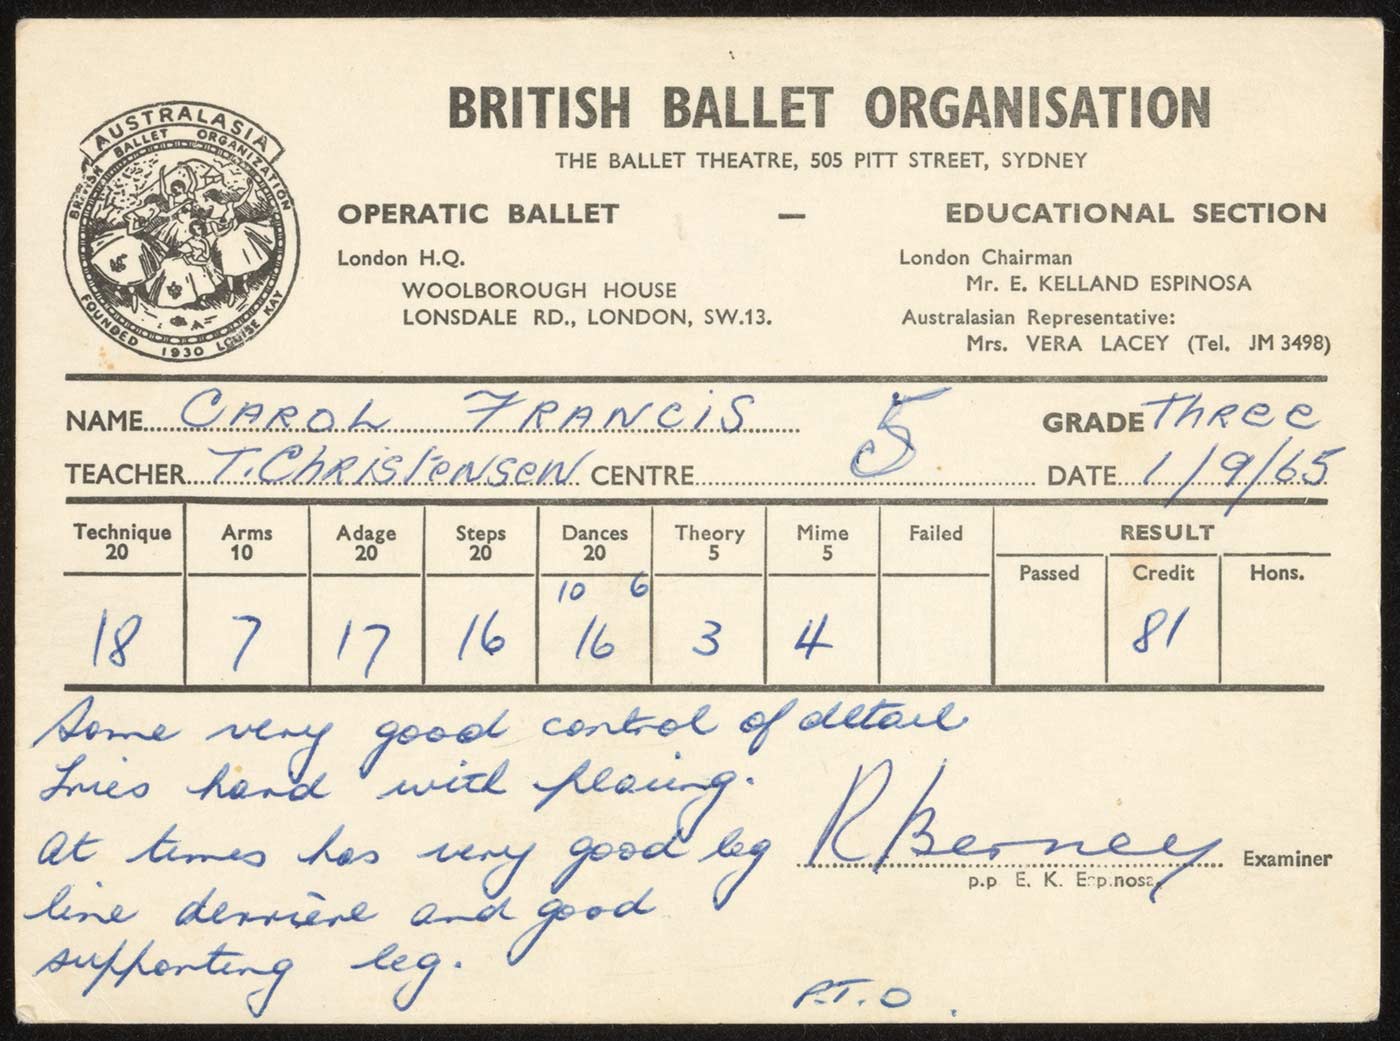 AUSTRALASIA
BRITISH BALLET ORGANIZATION
FOUNDED 1930 LOUISE KAY
BRITISH BALLET ORGANISATION
THE BALLET THEATRE, 505 PITT STREET, SYDNEY
OPERATIC BALLET — EDUCATIONAL SECTION
London H.Q.
WOOLBOROUGH HOUSE
LONSDALE RD., LONDON, SW.13.
London Chairman
Mr. E. KELLAND ESPINOSA
Australasian Representative:
Mrs. VERA LACEY (Tel. JM 3498)
NAME CAROL FRANCIS 5 GRADE THREE
TEACHER T. Christensen CENTRE DATE 1/9/65
Technique Arms Adage Steps Dances Theory Mime Failed RESULT
20 10 20 20 20 5 5
Passed Credit Hons.
10 6
18 7 17 16 16 3 4 81
Some very good control of detail
Tries hard with placing.
At times has very good leg
line derrière and good
supporting leg.
R Berney Examiner
p.p E. K. Espinosa
P.T.O.